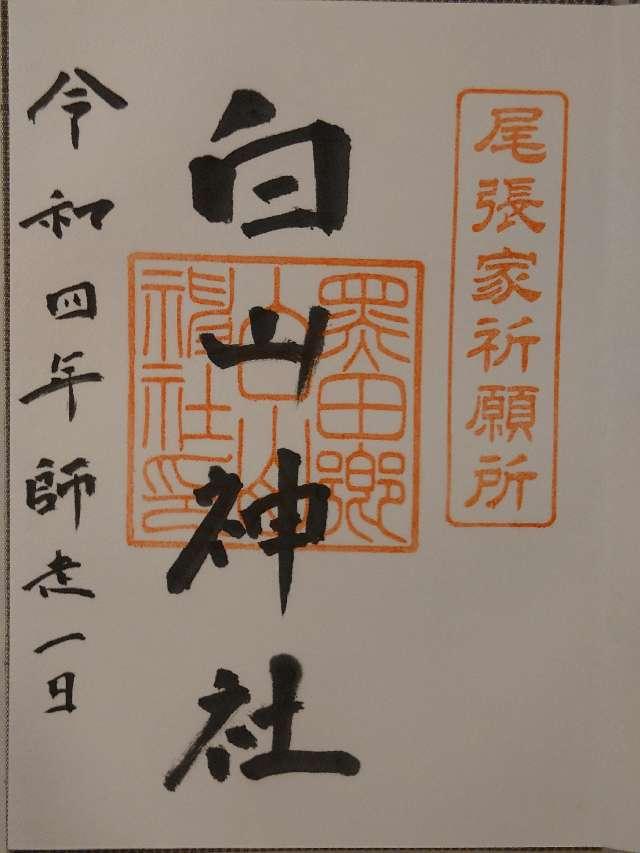 尾張家祈願所
白山神社
黒田郷
白山
神社印
令和四年師走一日